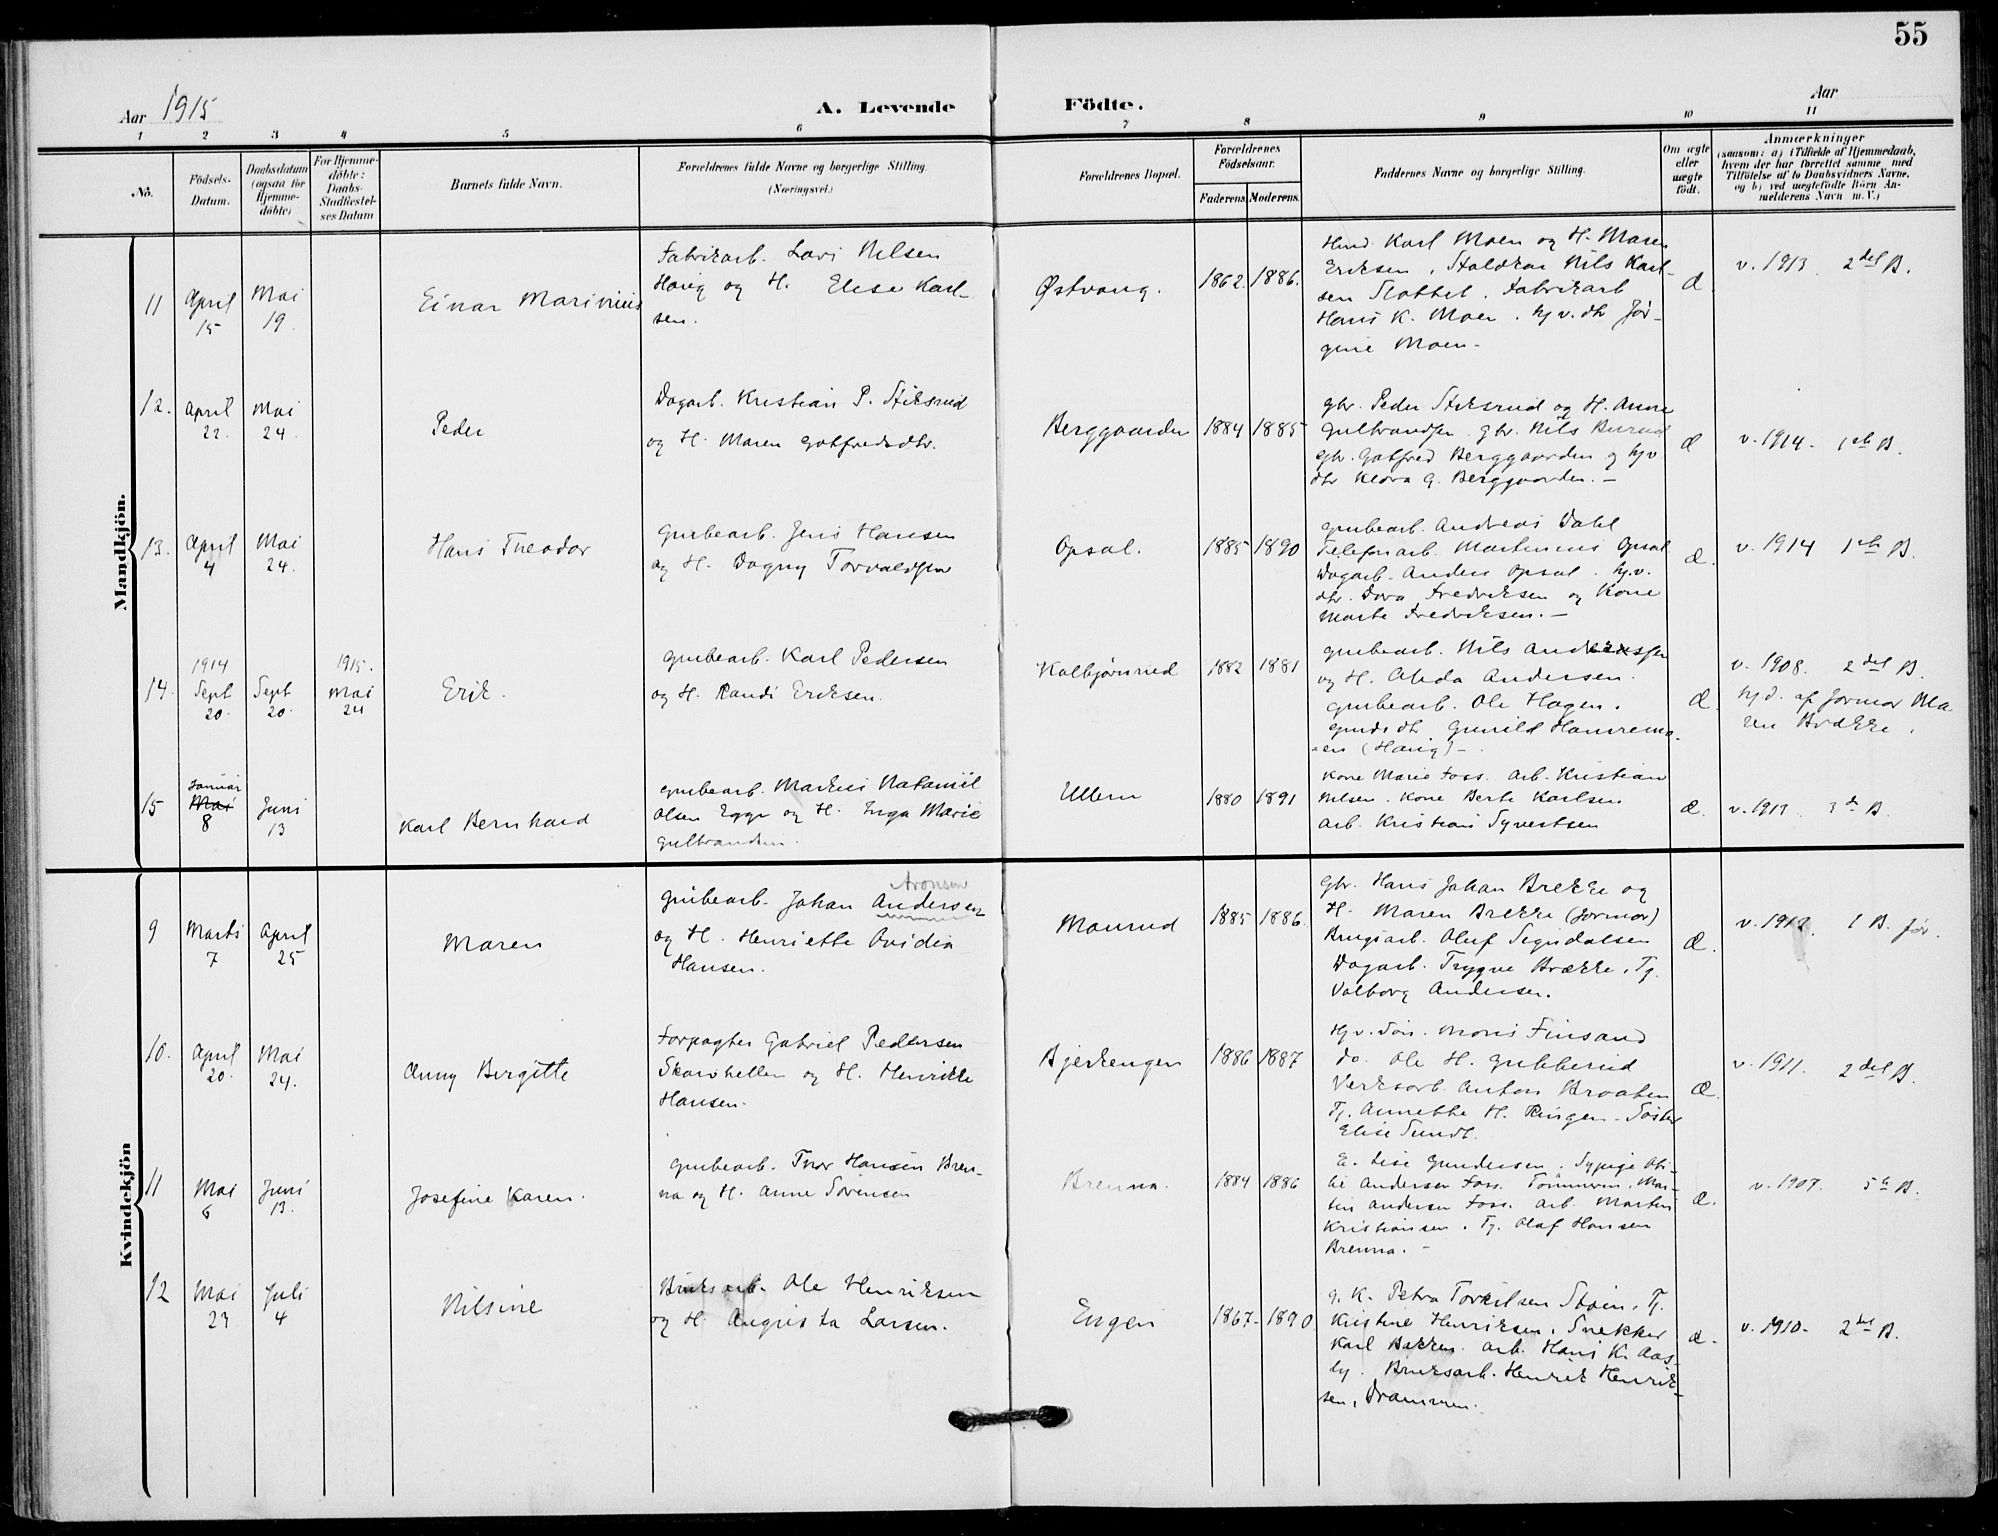 55
Aar 1915
A. Levende Födte.
Aar
1 2 3 4 5 6 7 8 9 10 11
No.
Födsels-
Datum.
Daabsdatum
(ogsaa for
Hjemme-
döbte)
For Hjemme-
döbte:
Daabs-
Stadfæstel-
ses Datum
Barnets fulde Navn.
Forældrenes fulde Navne og borgerlige Stilling.
(Næringsvei.)
Forældrenes Bopæl.
Forældrenes
Födselsaar.
Faderens. Moderens.
Faddernes Navne og borgerlige Stilling.
Om ægte
eller
uægte
födt.
Anmærkninger
(saasom: a) i Tilfælde af Hjemmedaab,
hvem der har forrettet samme, med
Tilföielse af to Daabsvidners Navne,
og b) ved uægtefödte Börn An-
melderens Navn m. V.)
Mandkjön.
11
April
15
Mai
19.
Einar Marinius
Fabrikarb. Lars Nilsen
Haug og H. Elise Karl-
sen.
Østvang.
1862. 1886.
Karl Moen og H. Maren
Eriksen, Staldkar Nils Karl-
sen Slottet. Fabrikarb
Hans K. Moen. hjv. dtr Jør-
gine Moen.
Æ
v. 1913. 2det B.
12.
April
22.
Mai
24.
Peder
Dagarb. Kristian P. Stiksrud
og H. Maren Gotfredsdtr.
Berggaarden
1884 1885
Gbr. Peder Stiksrud og H. Anne
Gulbrandsen. Gbr. Nils Burud
Gbr. Gotfred Berggaarden og hjv
dtr Klara G. Berggaarden. -
Æ
v. 1914. 1ste B.
13.
April
4
Mai
24.
Hans Theodor
Grubearb. Jens Hansen
og H. Dagny Torvaldsen
Opsal.
1885 1890
Grubearb. Andreas Dahl
Telefonarb. Martinius Opsal
Dagarb. Anders Opsal. hj.v.
dtr. Dora Fredriksen og Kone
Marte Fredriksen. -
Æ.
v. 1914 1ste B.
14.
1914
Sept
20.
Sept
20.
1915.
Mai
24
Erik.
Grubearb. Karl Pedersen
og H. Randi Eriksen.
Kolbjørnrud
1882 1881
Grubearb. Nils Anderssen
og H. Alida Andersen.
Grubearb. Ole Hagen.
Gmds dtr. Gunild Hamremo-
en (Haug) -
Æ.
v. 1908. 2det B.
hj.d. af Jormor Ma-
ren Brække.
15
Januar
Mai
8
Juni
13
Karl Bernhard
Grubearb. Markus Nataniel
Olsen Egge og H. Inga Marie
Gulbrandsen.
Ullern
1880 1891
Kone Marie Foss. Arb. Kristian
Nilsen. Kone Berte Karlsen
Arb. Kristian Syvertsen
Æ.
v. 1913. 3de B.
Kvindekjön
9
Marts
7
April
25
Maren
Aronsen
Grubearb. Johan Andersen
og H. Henriette Ovidia
Hansen.
Monrud
1885 1886.
Gbr. Hans Johan Brekke og
H. Maren Brekke (Jormor)
Brugsarb. Oluf Sigdalsen
Dagarb. Trygve Brække. Tj.
Valborg Andersen.
Æ.
v. 1912. 1 B. før.
10.
April
20.
Mai
24.
Anny Birgitte
Forpagter Gabriel Pedersen
Skarshellen og H. Henrikke
Hansen.
Bjerkengen
1886 1887
Hjv. Søn. Moris Finsand
do. Ole H. Gubberud
Verksarb. Anton Braaten
Tj. Annette H. Ringen. Søster
Elise Sundt.
Æ.
v. 1911. 2det B.
11
Mai
6
Juni
13.
Josefine Karen.
Grubearb. Thor Hansen Bren-
na og H. Anne Sørensen
Brenna.
1884 1886
E. Lise Gundersen. Sypige Oti-
lie Andersen Foss. Tømmerm. Mar-
tin Andersen Foss. Arb. Martin
Kristiansen. Tj. Olaf Hansen
Brenna. -
Æ.
v. 1907. 5te B.
12
Mai
23
Juli
4
Nilsine
Bruksarb. Ole Henriksen
og H. Augusta Larsen.
Engen
1867- 1890
G. K. Petra Torkilsen Stoin. Tj.
Kristine Henriksen. Snekker
Karl Bakken. Arb. Hans K. Aas-
by. Bruksarb. Henrik Henrik-
sen, Drammen.
Æ.
v. 1910. 2det B.